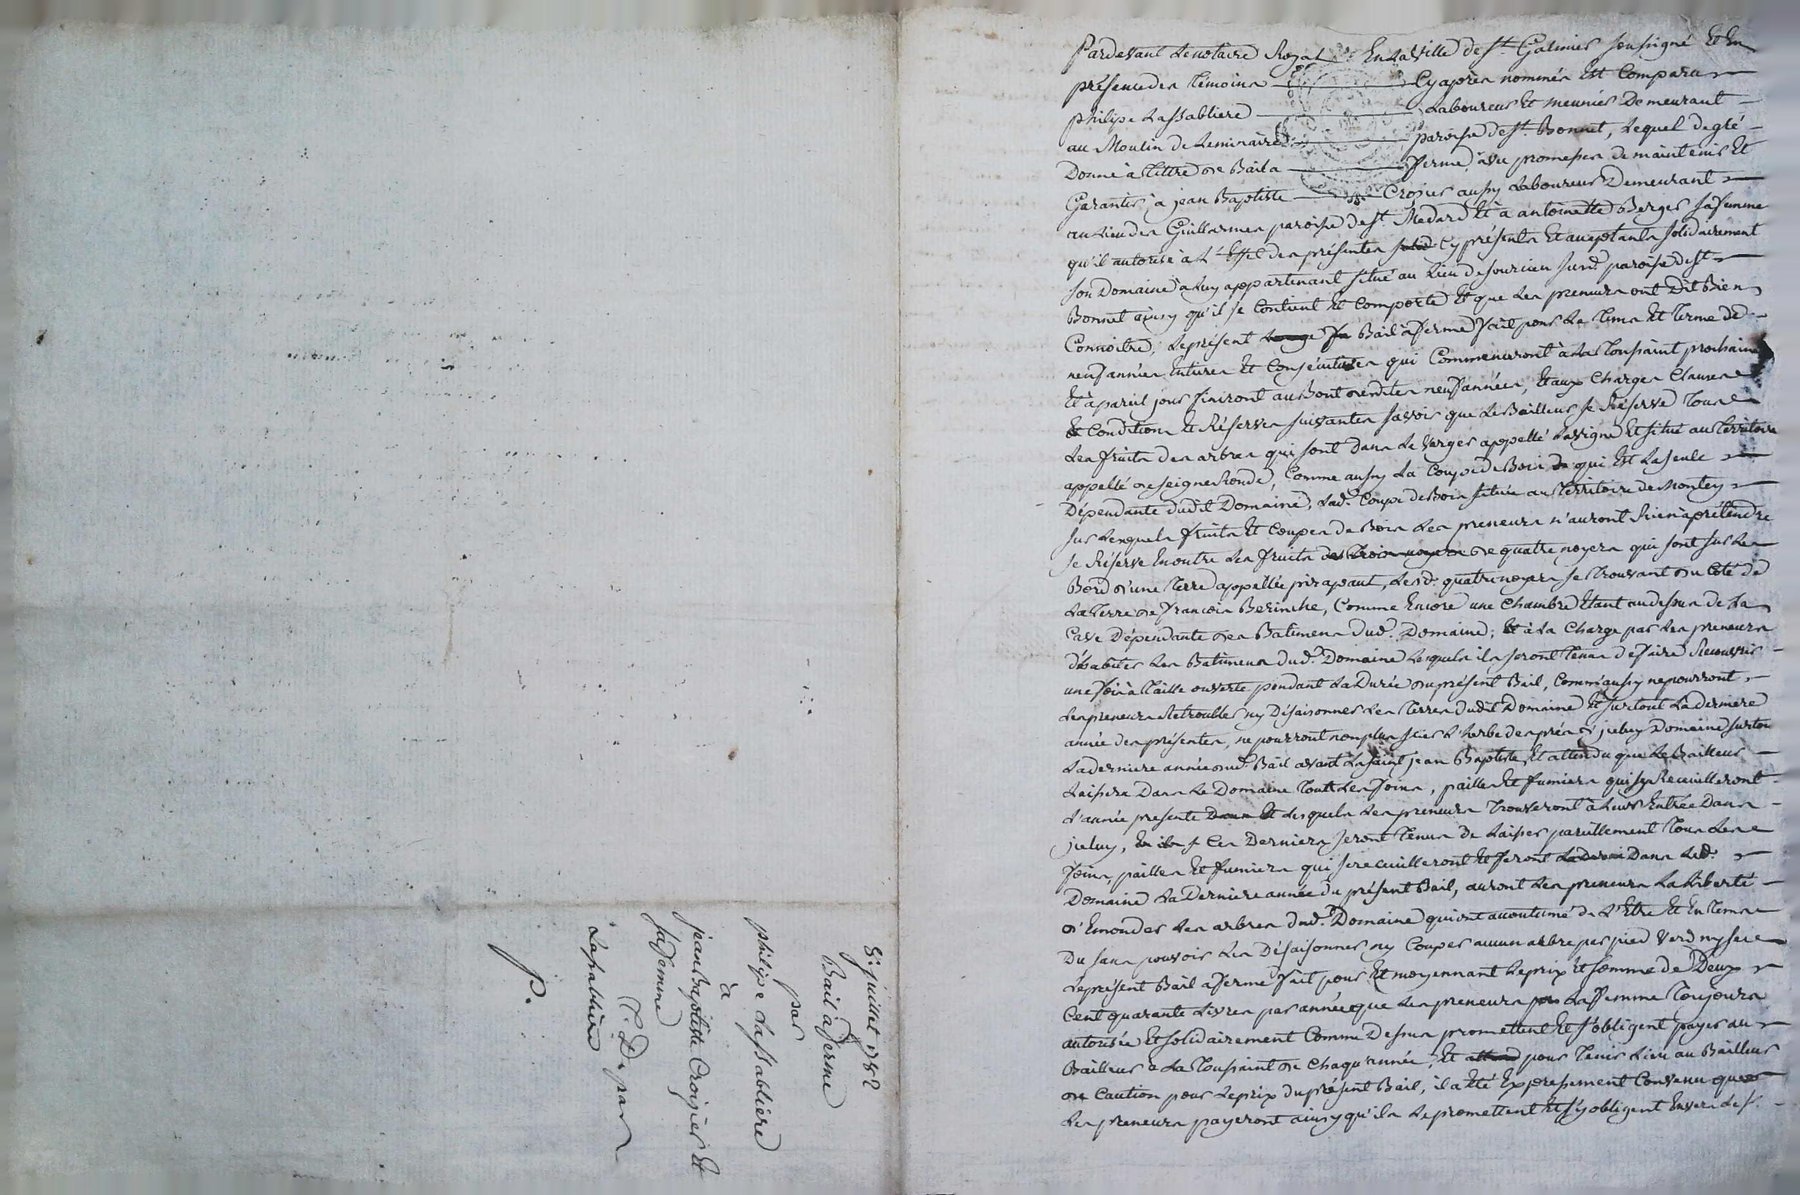 8e. juillet 1782
Bail à ferme
par
philipe Lassabliere
à
jean Baptiste Croizier Et
sa femme
Lassabliere
P.
Pardevant Le notaire Royal En La Ville de St. Galmier soussigné Et En
présence des Témoins Cy après nommés Est Comparu
philipe Lassabliere Laboureur Et meunier Demeurant
au Moulin de Leminaire paroisse de St. Bonnet, Lequel de gré
Donne à Tittre de Bail a ferme avec promesses de maintenir Et
Garantir à jean Baptiste Crosier aussy Laboureur Demeurant
au Lieu des Guillarmes paroisse de St. Medard Et à antoinette Berger sa femme
qu'il autorise à L'Effet des présentes Cy présents Et acceptants solidairement
son Domaine à Luy appartenant situé au Lieu de sourcieu susd. paroisse de St.
Bonnet ainsy qu'il se Contient Et Comporte Et que Les preneurs ont Dit Bien
Connoitre, Le présent Bail à ferme fait pour Le Tems Et Terme de
neuf années Entieres Et Consécutives qui Commenceront à La Toussaint prochaine
Et à pareil jour finiront au Bout desdites neuf années, Et aux Charges Clauses
Et Conditions Et Réserves suivantes savoir que Le Bailleur se Réserve Tous
Les fruits des arbres qui sont dans Le Verger appellé Lavigne Et situé au Territoire
appellé de seigne Ronde, Comme aussy La Coupe de Bois qui Est La seule
Dépendante dudit Domaine, Lad. Coupe de Bois située au Territoire de Montey
sur Lesquels fruits Et Coupes de Bois Les preneurs n'auront Rien à prétendre
se Réserve En outre Les fruits de quatre noyers qui sont sur Le
Bord d'une Terre appellée, Lesd. quatre noyers se Trouvant du Coté de
La Terre de francois Berinche, Comme Encore une Chambre Etant au dessus de La
Cave Dépendante des Batimens dud. Domaine; Et à La Charge par Les preneurs
d'habiter Les Batimens dud. Domaine Lesquels ils seront Tenus de faire Recouvrir
une fois à Taille ouverte pendant La Durée du présent Bail, Comme aussy ne pourront
Les preneurs Retroubler ny Désaisonner Les Terres dudit Domaine Et surtout La derniere
année des présentes, ne pourront non plus scier L'herbe des prés d'jceluy Domaine surtout
La derniere année dud. Bail avant La saint jean Baptiste, Et attendu que Le Bailleur
Laissera Dans Le Domaine Tout Les foins, pailles Et fumiers qui s'y Recueilleront
L'année presente Lesquels Les preneurs Trouveront à Leur Entrée Dans
jceluy, Ces Derniers seront Tenus de Laisser pareillement Tous Les
foins pailles Et fumiers qui se recueilleront Et feront Dans Led.
Domaine La Derniere année du présent Bail, auront Les preneurs La Liberté
d'Emonder Les arbres dud. Domaine qui ont accoutumé de L'Etre Et En Tems
Du sans pouvoir Les Désaisonner ny Couper aucun arbre par pied Verd ny sec
Le présent Bail à ferme fait pour Et moyennant Le prix Et somme de Deux
Cent quarante Livres par année que Les preneurs La femme Toujours
autorisée Et solidairement Comme Dessus promettent Et s'obligent payer au
Bailleur à La Toussaint de Chaqu'année, Et pour Tenir Lieu au Bailleur
de Caution pour Le prix du présent Bail, il a Eté Expressement Convenu que
Les preneurs payeront ainsy qu'ils Le promettent Et s'y obligent Envers Le sr.